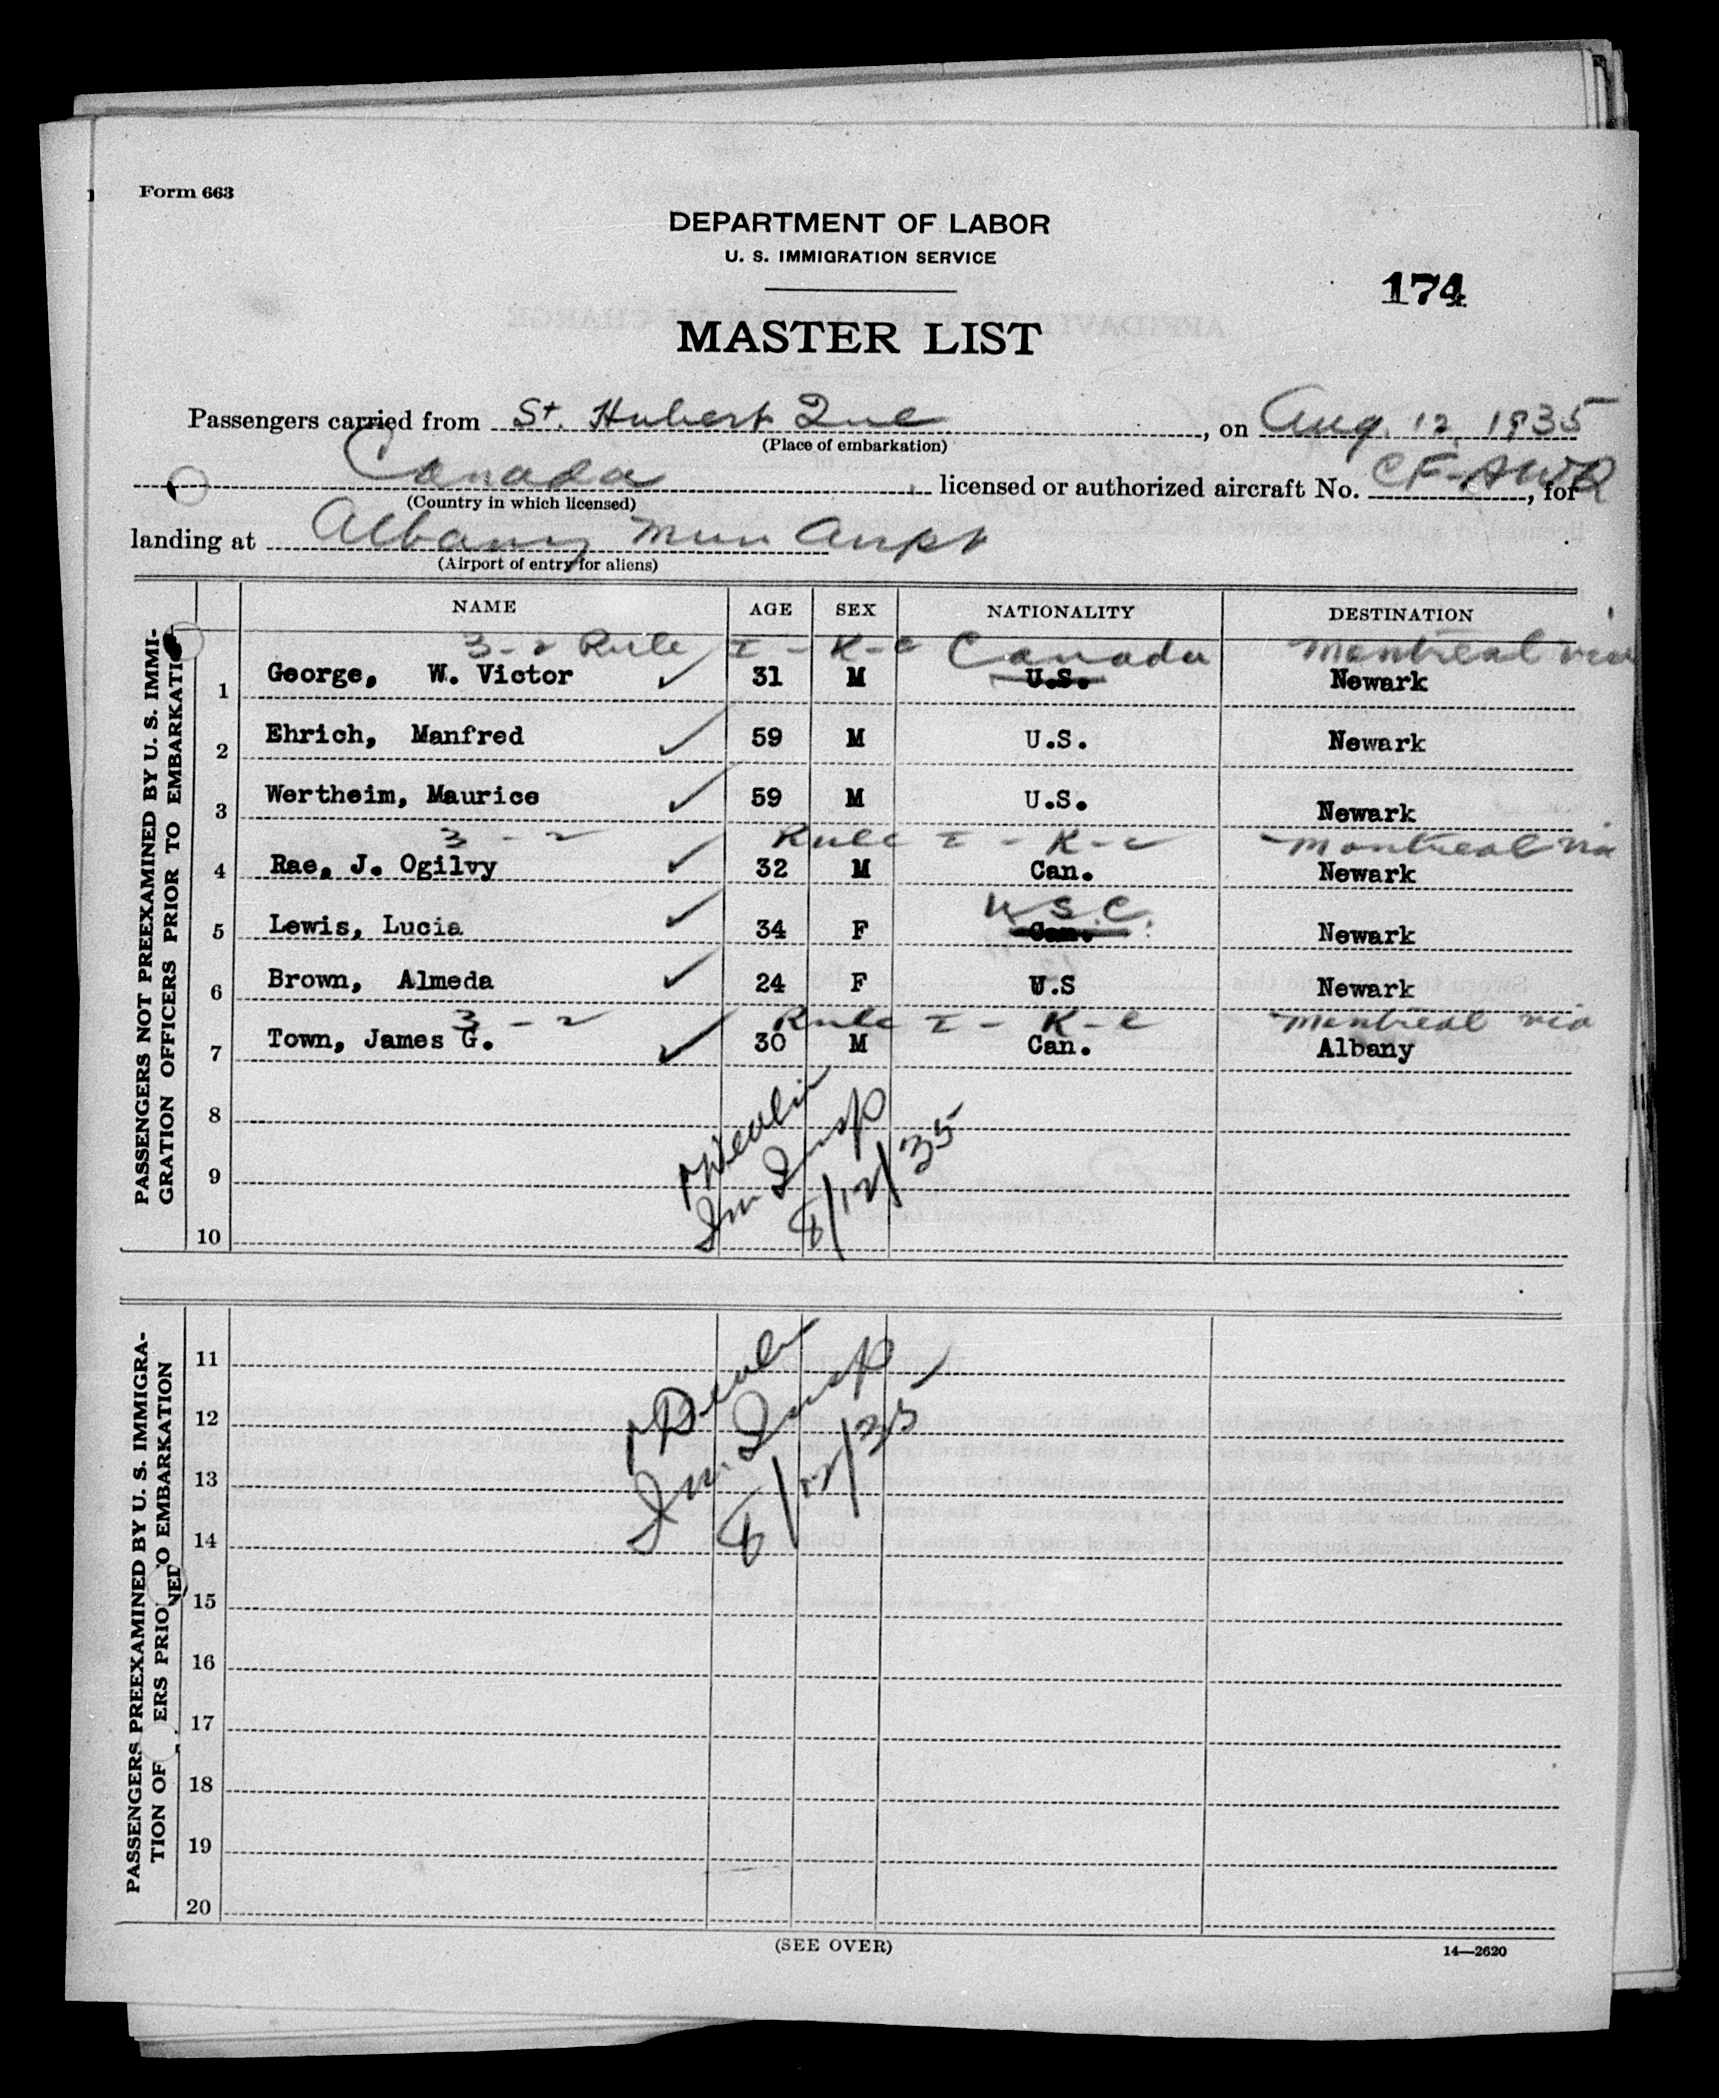 Form 663
DEPARTMENT OF LABOR
U. S. IMMIGRATION SERVICE
174
MASTER LIST
Passengers carried from St. Hubert Que, on Aug. 12, 1935
(Place of embarkation)
Canada licensed or authorized aircraft No. CF-AWR, for
(Country in which licensed)
landing at Albany Mun Airpt
(Airport of entry for aliens)
NAME AGE SEX NATIONALITY DESTINATION
PASSENGERS NOT PREEXAMINED BY U. S. IMMI-
GRATION OFFICERS PRIOR TO EMBARKATI
3-2 Rule I - K-c Canada Montreal via
1 George, W. Victor 31 M U.S. Newark
2 Ehrich, Manfred 59 M U.S. Newark
3 Wertheim, Maurice 59 M U.S. Newark
3 - 2 Rule I - K-c Montreal via
4 Rae, J. Ogilvy 32 M Can. Newark
U.S.C.
5 Lewis, Lucia 34 F Can. Newark
6 Brown, Almeda 24 F U.S Newark
3 - 2 Rule I - K-c Montreal via
7 Town, James G. 30 M Can. Albany
8
9
10
Im Insp
8/12/35
PASSENGERS PREEXAMINED BY U. S. IMMIGRA-
TION OF ERS PRIO NED O EMBARKATION
11
12
13
14
Im. Insp
8/12/35
15
16
17
18
19
20
(SEE OVER)
14—2620